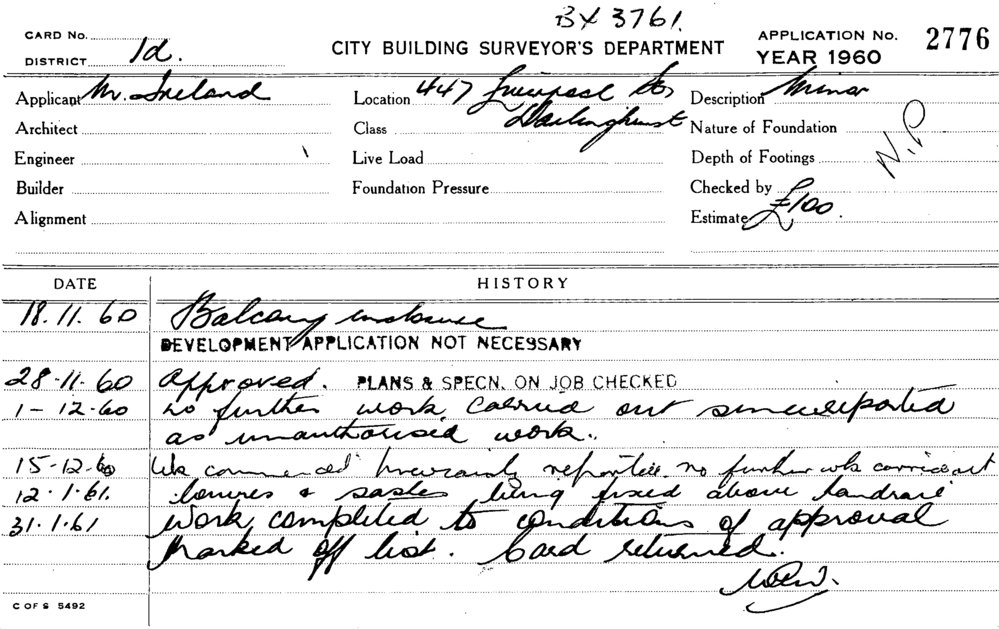 BX 3761.
CARD No.
DISTRICT 1d.
CITY BUILDING SURVEYOR'S DEPARTMENT
APPLICATION No. 2776
YEAR 1960
Applicant Mr. Ireland
Location 447 Liverpool St
Darlinghurst
Description Minor
Architect
Class
Nature of Foundation
N.P
Engineer
Live Load
Depth of Footings
Builder
Foundation Pressure
Checked by
Alignment
Estimate £100.
DATE HISTORY
18.11.60 Balcony inclosure
DEVELOPMENT APPLICATION NOT NECESSARY
28-11-60 Approved. PLANS & SPECN. ON JOB CHECKED
1-12-60 no further work carried out since reported
as unauthorised work.
15-12-60 Wk commenced previously reported no further wk carried out
12.1.61. louvres & sashes being fixed above handrail
31.1.61 Work completed to conditions of approval
Marked off list. Card returned.
C OF S 5492